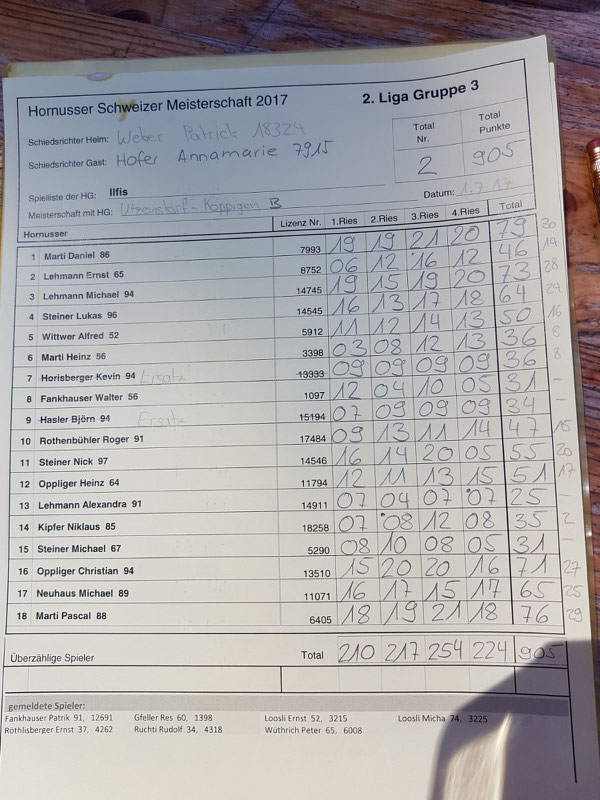 Hornusser Schweizer Meisterschaft 2017
2. Liga Gruppe 3
Schiedsrichter Heim: Weber Patrick 18324
Schiedsrichter Gast: Hofer Annamarie 7915
Total Nr. Total Punkte
2 905
Spielliste der HG: Ilfis
Meisterschaft mit HG: Utzenstorf-Koppigen B Datum: 1.7.17
Hornusser Lizenz Nr. 1.Ries 2.Ries 3.Ries 4.Ries Total
1 Marti Daniel 86 7993 19 19 21 20 79 30
2 Lehmann Ernst 65 8752 06 12 16 12 46 14
3 Lehmann Michael 94 14745 19 15 19 20 73 28
4 Steiner Lukas 96 14545 16 13 17 18 64 24
5 Wittwer Alfred 52 5912 11 12 14 13 50 16
6 Marti Heinz 56 3398 03 08 12 13 36 8
7 Horisberger Kevin 94 Ersatz 13333 09 09 09 09 36 8
8 Fankhauser Walter 56 1097 12 04 10 05 31 -
9 Hasler Björn 94 Ersatz 15194 07 09 09 09 34 -
10 Rothenbühler Roger 91 17484 09 13 11 14 47 15
11 Steiner Nick 97 14546 16 14 20 05 55 20
12 Oppliger Heinz 64 11794 12 11 13 15 51 17
13 Lehmann Alexandra 91 14911 07 04 07 07 25 -
14 Kipfer Niklaus 85 18258 07 08 12 08 35 2
15 Steiner Michael 67 5290 08 10 08 05 31 -
16 Oppliger Christian 94 13510 15 20 20 16 71 27
17 Neuhaus Michael 89 11071 16 17 15 17 65 25
18 Marti Pascal 88 6405 18 19 21 18 76 29
Überzählige Spieler Total 210 217 254 224 905
gemeldete Spieler:
Fankhauser Patrik 91, 12691 Gfeller Res 60, 1398 Loosli Ernst 52, 3215 Loosli Micha 74, 3225
Röthlisberger Ernst 37, 4262 Ruchti Rudolf 34, 4318 Wüthrich Peter 65, 6008